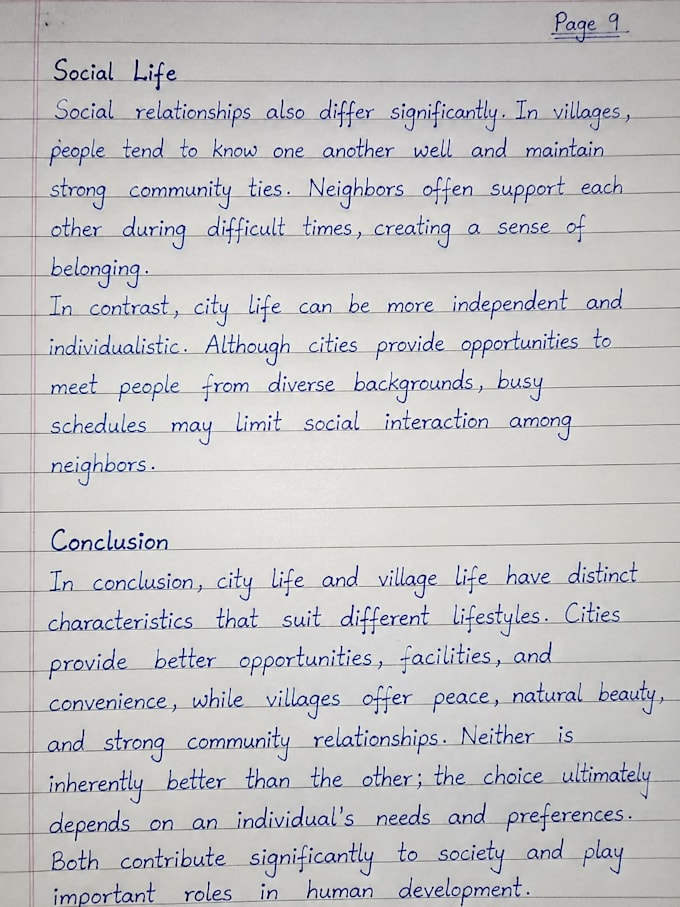 Page 9
Social Life
Social relationships also differ significantly. In villages,
people tend to know one another well and maintain
strong community ties. Neighbors offen support each
other during difficult times, creating a sense of
belonging.
In contrast, city life can be more independent and
individualistic. Although cities provide opportunities to
meet people from diverse backgrounds, busy
schedules may limit social interaction among
neighbors.
Conclusion
In conclusion, city life and village life have distinct
characteristics that suit different lifestyles. Cities
provide better opportunities, facilities, and
convenience, while villages offer peace, natural beauty,
and strong community relationships. Neither is
inherently better than the other; the choice ultimately
depends on an individual's needs and preferences.
Both contribute significantly to society and play
important roles in human development.